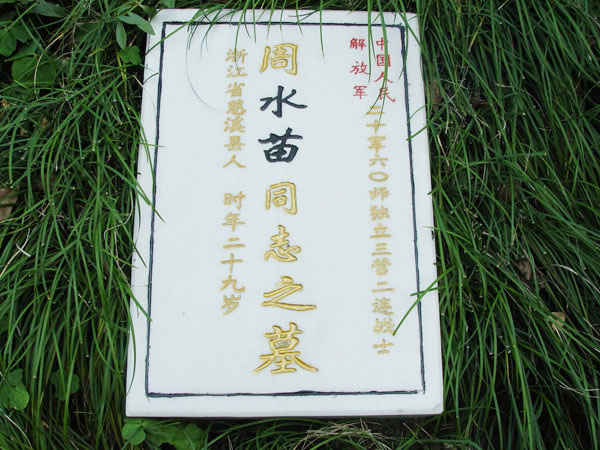 中国人民
解放军
二十军六〇师独立三营二连战士
周水苗同志之墓
浙江省慈溪县人 时年二十九岁